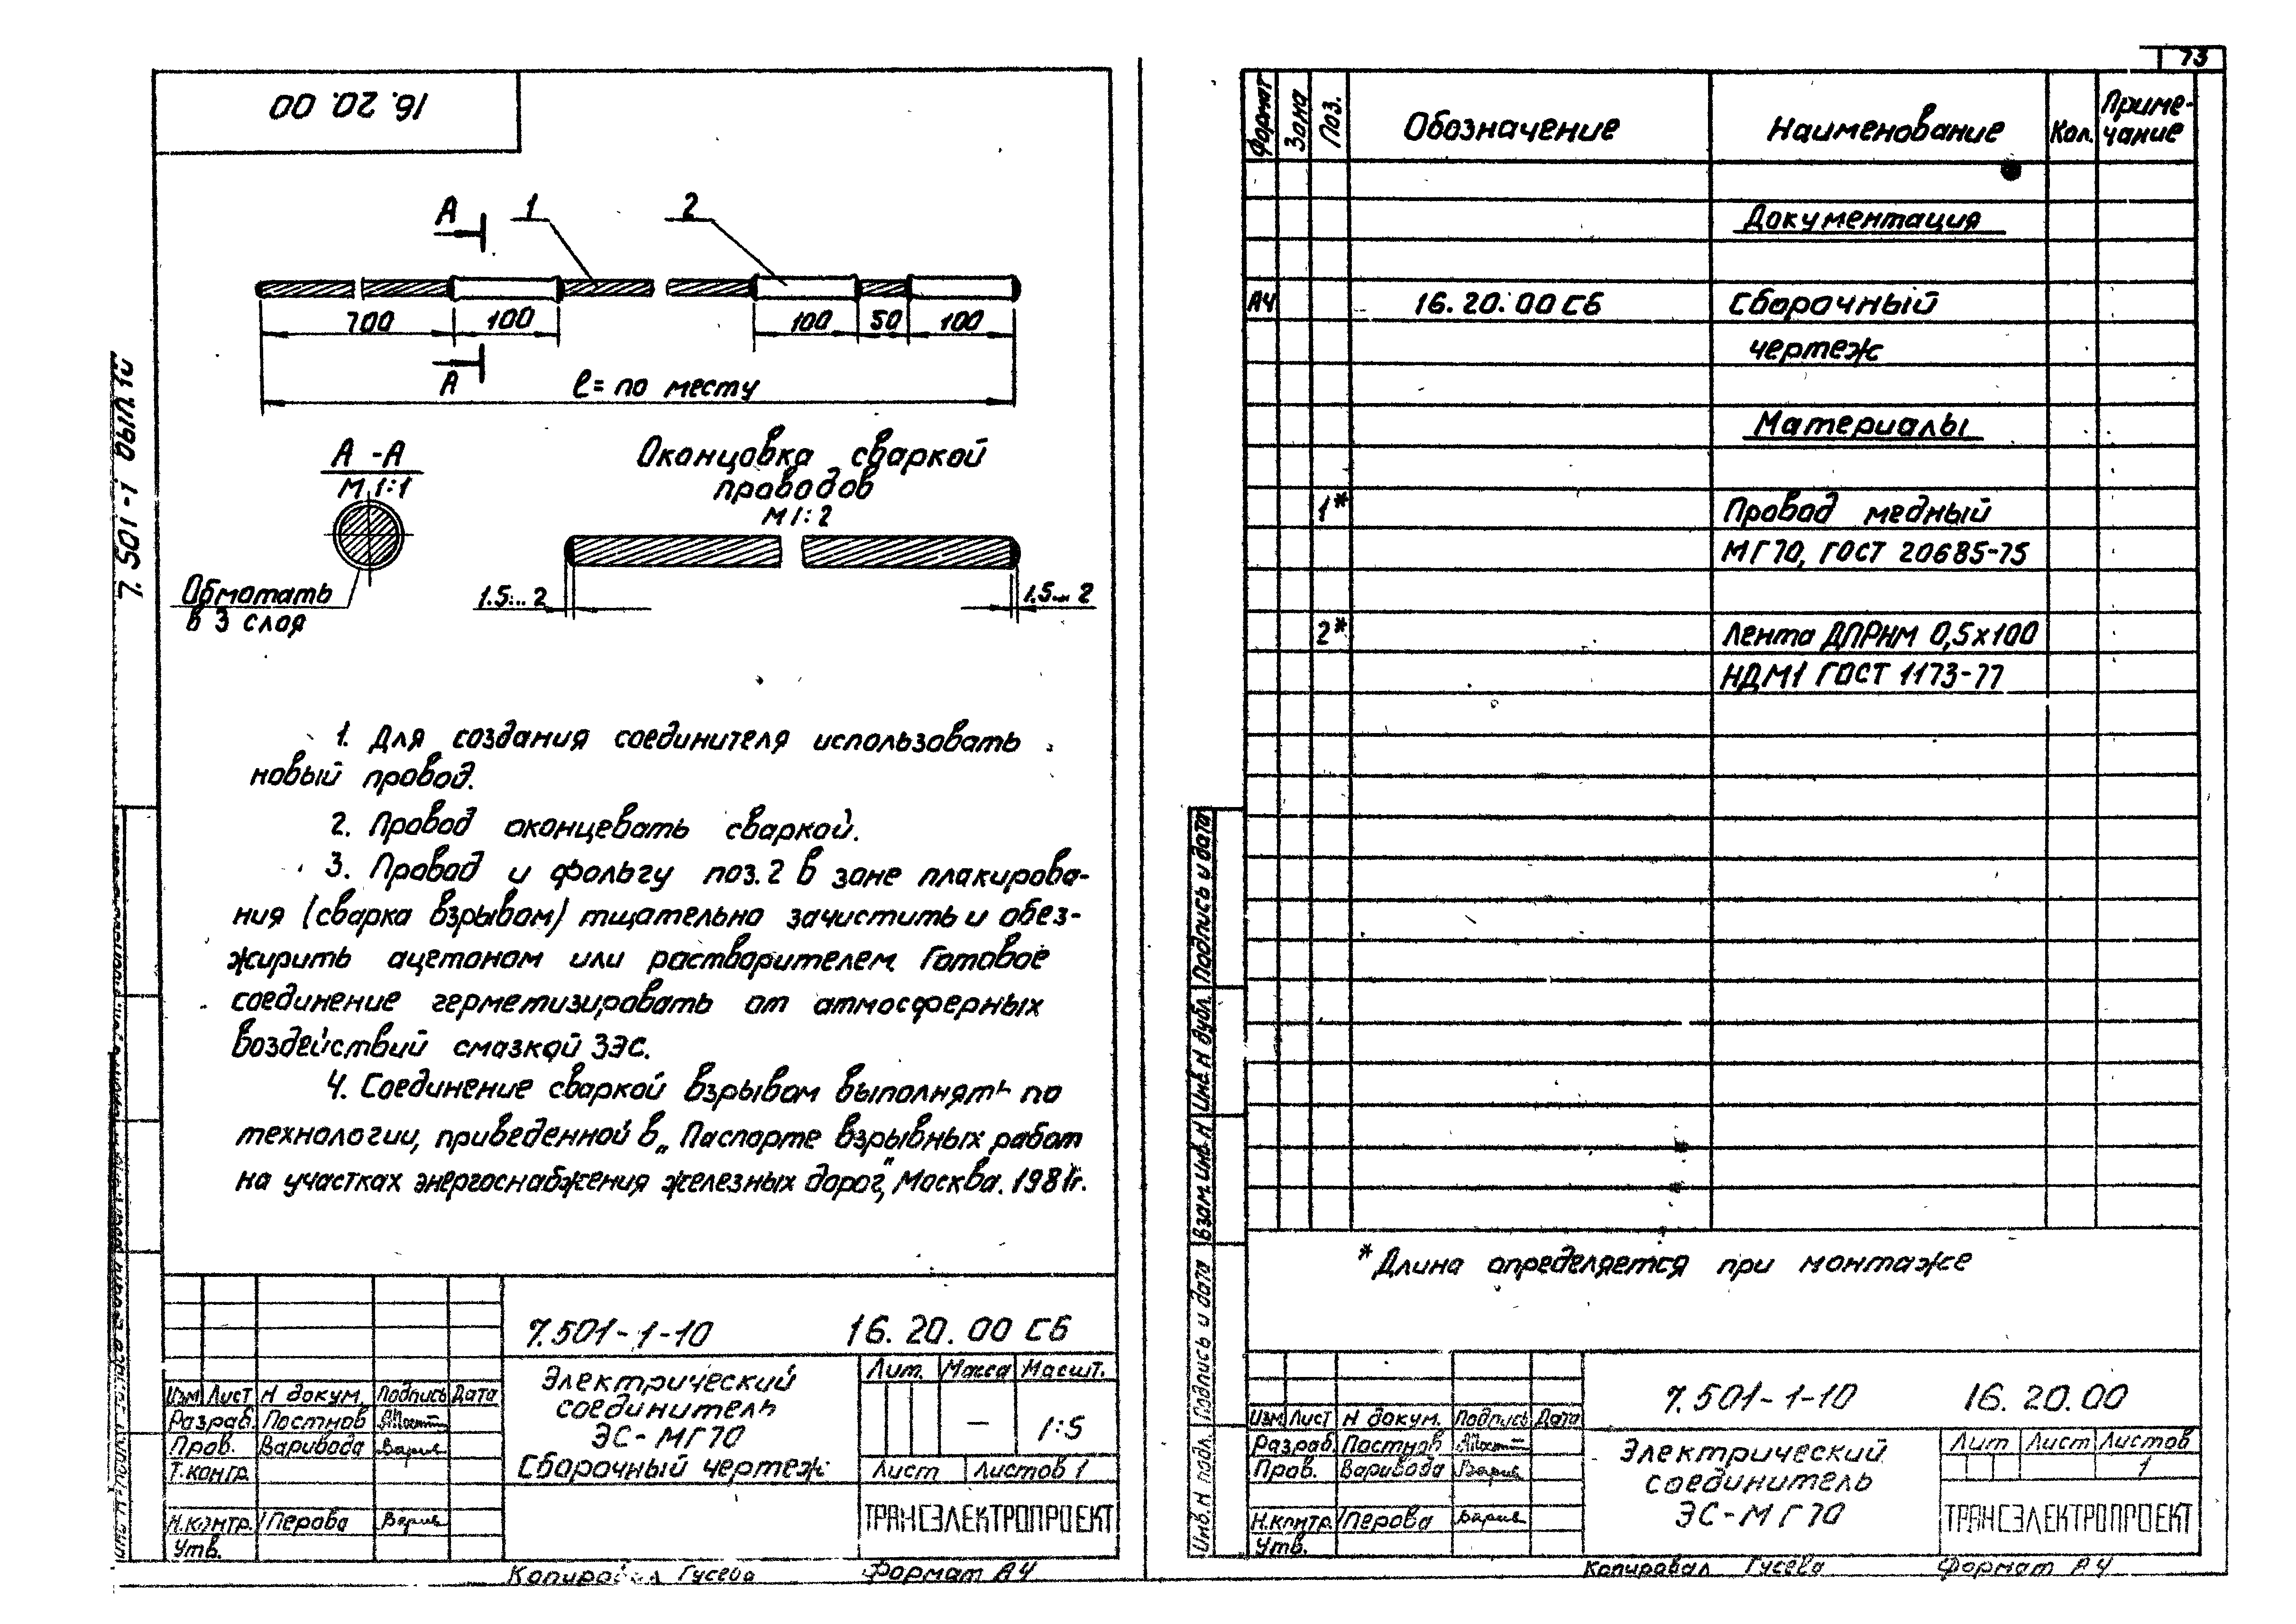 16.20.00
7.501-1 вып.10
А
1
2
700
100
100
50
100
А
ℓ= по месту
А-А
М 1:1
Обмотать
в 3 слоя
Оконцовка сваркой
проводов
М 1:2
1.5...2
1.5...2
1. Для создания соединителя использовать
новый провод.
2. Провод оконцевать сваркой.
3. Провод и фольгу поз.2 в зоне плакирова-
ния (сварка взрывом) тщательно зачистить и обез-
жирить ацетоном или растворителем. Готовое
соединение герметизировать от атмосферных
воздействий смазкой ЗЭС.
4. Соединение сваркой взрывом выполнять по
технологии, приведенной в „Паспорте взрывных работ
на участках энергоснабжения железных дорог", Москва. 1981г.
7.501-1-10 16.20.00 СБ
Электрический
соединитель
ЭС-МГ70
Сборочный чертеж
Лит. Масса Масшт.
– 1:5
Лист Листов 1
ТРАНСЭЛЕКТРОПРОЕКТ
Изм Лист N докум. Подпись Дата
Разраб. Постнов
Пров. Варивода
Т.контр.
Н.контр. Перова
Утв.
Копировал Гусева Формат А4
73
Формат Зона Поз. Обозначение Наименование Кол. Приме-
чание
Документация
А4 16.20.00 СБ Сборочный
чертеж
Материалы
1* Провод медный
МГ70, ГОСТ 20685-75
2* Лента ДПРНМ 0,5х100
НДМ1 ГОСТ 1173-77
* Длина определяется при монтаже
Подпись и дата
Инв.N дубл.
Взам.инв.N
Подпись и дата
Инв.N подл.
7.501-1-10 16.20.00
Электрический
соединитель
ЭС-МГ70
Лит Лист Листов
1
ТРАНСЭЛЕКТРОПРОЕКТ
Изм Лист N докум. Подпись Дата
Разраб. Постнов
Пров. Варивода
Н.контр. Перова
Утв.
Копировал Гусева Формат А4